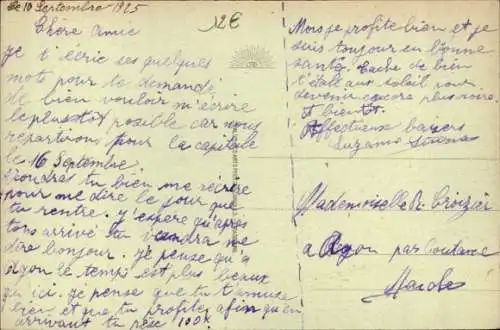 le 10 Septembre 1925
12€
Chère Amie
je t'écris ces quelques
mots pour te demandé
de bien vouloir m'écrire
le plus tôt posible car nous
repartirons pour la capitale
le 16 Septembre
voudras tu bien me récrire
pour me dire le jour que
tu rentre. j'espère qu'après
tons arrivé tu viendra me
dire bonjour. je pense qu'a
Agon le temps est plus beaux
qu'ici. je pense que tu t'amuse
bien et que tu profites afin qu'en
arrivant tu pèse 100k
Moi je profite bien et je
suis toujour en bonne
santé. Tache de bien
t'étalé aux soleil pour
devenir encore plus noire
A bientôt
Affectueux baisers
Suzanne
Mademoiselle R. Croizier
a Agon par Coutance
Manche